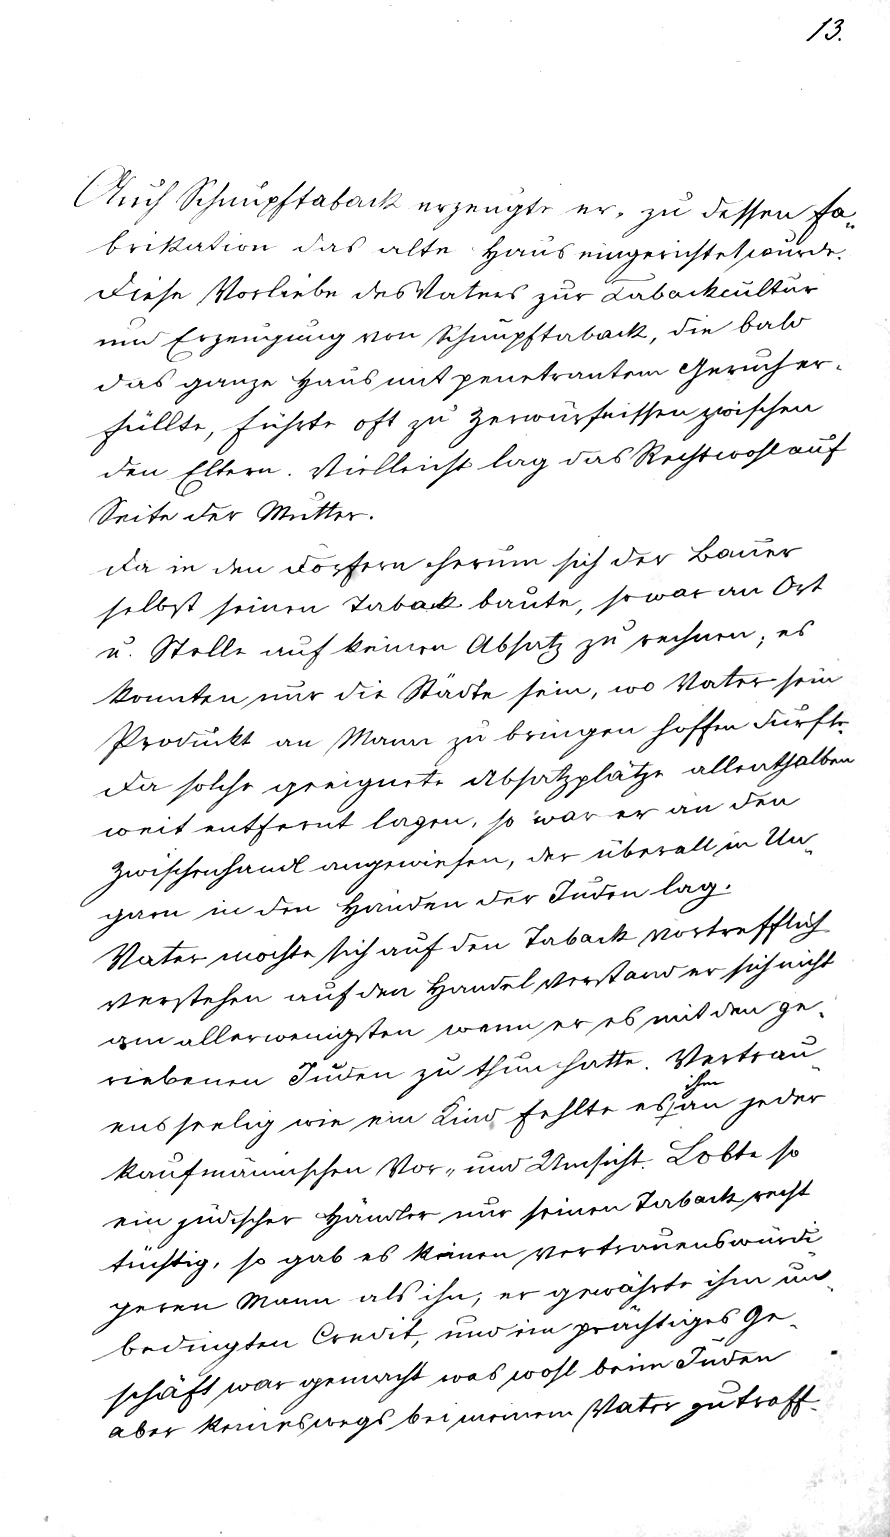 13.
Auch Schnupftaback erzeugte er, zu dessen Fa„
brikation das alte Haus eingerichtet wurde.
Diese Vorliebe des Vaters zur Tabackcultur
und Erzeugung von Schnupftaback, die bald
das ganze Haus mit penetrantem Geruch er„
füllte, führte oft zu Zerwürfnissen zwischen
den Eltern. Vielleicht lag das Recht wohl auf
Seite der Mutter.
Da in den Dörfern herum sich der Bauer
selbst seinen Taback baute, so war an Ort
u. Stelle auf keinen Absatz zu rechnen; es
konnten nur die Städte sein, wo Vater sein
Produckt an Mann zu bringen hoffen durfte.
Da solche geeignete Absatzplätze allenthalben
weit entfernt lagen, so war er an den
Zwischenhandl angewiesen, der überall in Un„
garn in den Händen der Juden lag.
Vater mochte sich auf den Taback vortrefflich
verstehen auf den Handel verstand er sich nicht
am allerwenigsten wenn er es mit den ge„
riebenen Juden zu thun hatte. Vertrau„
ensseelig wie ein Kind fehlte es ihm an jeder
kaufmännischen Vor„ und Umsicht. Lobte so
ein jüdischer Händler nur seinen Taback recht
tüchtig, so gab es keinen vertrauenswürdi„
geren Mann als ihn, er gewährte ihm un„
bedingten Credit, und ein prächtiges Ge„
schäft war gemacht was wohl beim Juden
aber keineswegs bei meinem Vater zutraff.